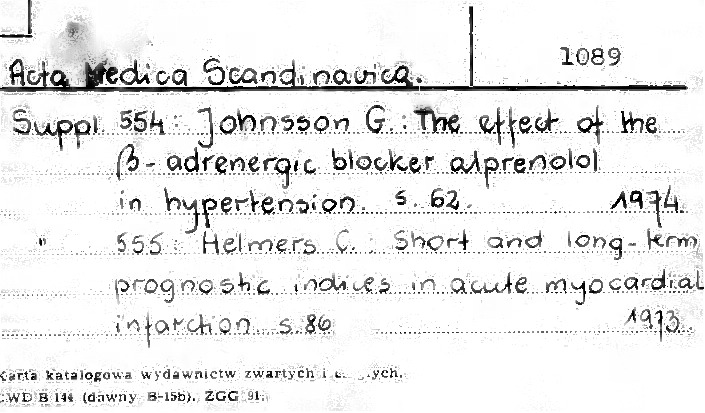 Acta Medica Scandinavica.
1089
Suppl. 554: Johnsson G.: The effect of the
β-adrenergic blocker alprenolol
in hypertension. s. 62. 1974.
" 555: Helmers C.: Short and long-term
prognostic indices in acute myocardial
infarction. s. 86 1973.
Karta katalogowa wydawnictw zwartych i
CWD B 144 (dawny B-15b). ZGG 91.